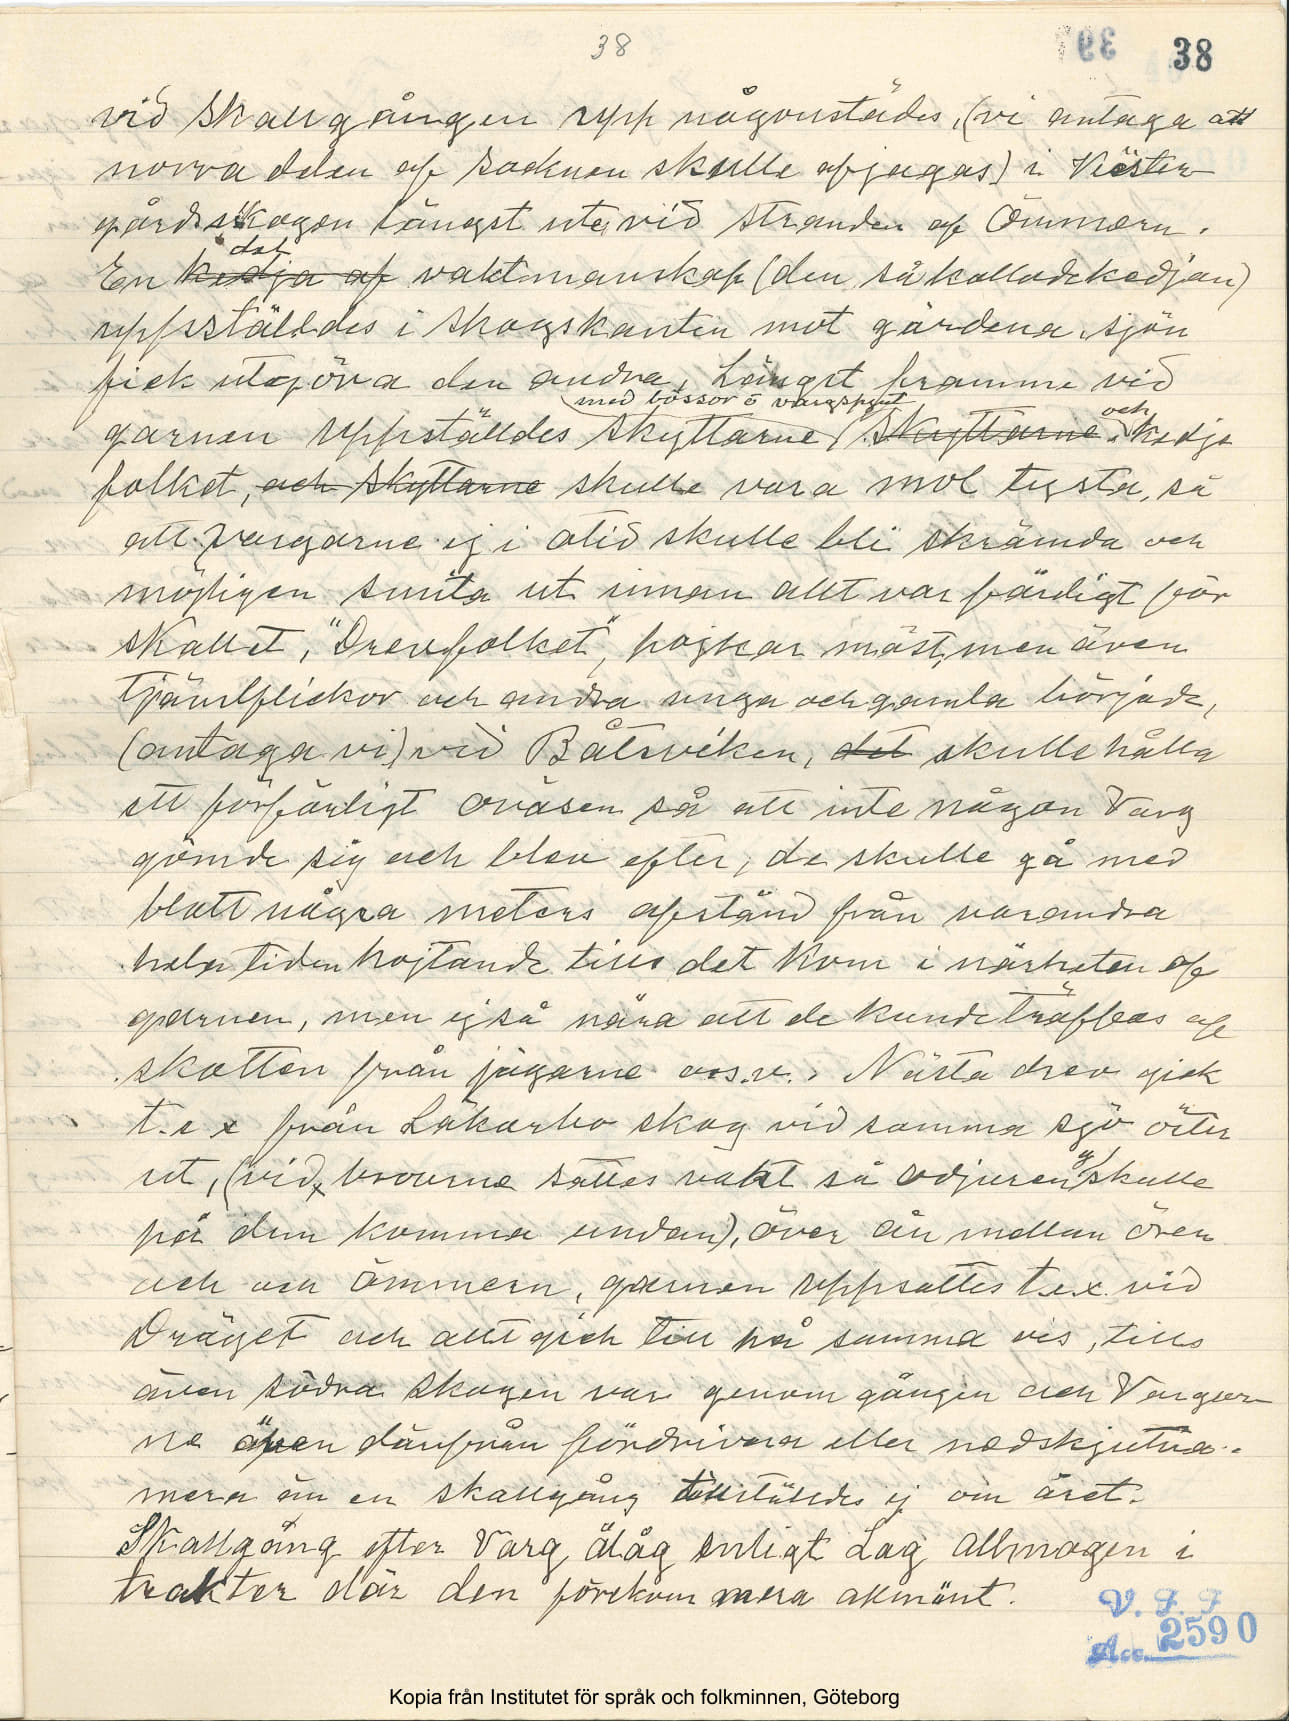 38
38
vid skallgången upp någonstädes, (vi antaga att
norra delen af socknen skulle afjagas) i Väster
gårdsskogen längst ute vid stranden af Ömmern.
det
En kedja af vaktmanskap (den så kallade kedjan)
uppställdes i skogskanten mot gärdena, sjön
fick utgöra den andra, Längst framme vid
med bössor o vargspjut
garnen uppställdes skyttarne, skyttarne och kedje
folket, och skyttarne skulle vara mol tysta, så
att vargarne ej i otid skulle bli skrämda och
möjligen smita ut innan allt var färdigt för
skallet, "Drevfolket", pojkar mäst, men även
tjänstflickor och andra unga och gamla började,
(antaga vi) vid Båtsviken, det skulle hålla
ett förfärligt oväsen så att inte någon Varg
gömde sig och blev efter, de skulle gå med
blott några meters afstånd från varandra
hela tiden hojtande tills det kom i närheten af
garnen, men ej så nära att de kunde träffas af
skotten från jägarne o.s.v. Nästa drev gick
t.e x från Läkarbo skog vid samma sjö öster
ut, (vid broarne sattes vakt så odjuren ej skulle
på den komma undan), över ån mellan ören
och och Ömmern, garnen uppsattes t.ex. vid
Dräget och allt gick till på samma vis, tills
även södra skogen var genom gången och Vargar
na även därifrån fördrivna eller nedskjutna.
mera än en skallgång tillstäldes ej om året.
Skallgång efter Varg ålåg enligt Lag allmogen i
trakter där den förekom mera allmänt.
V. F. F
Acc. 2590
Kopia från Institutet för språk och folkminnen, Göteborg